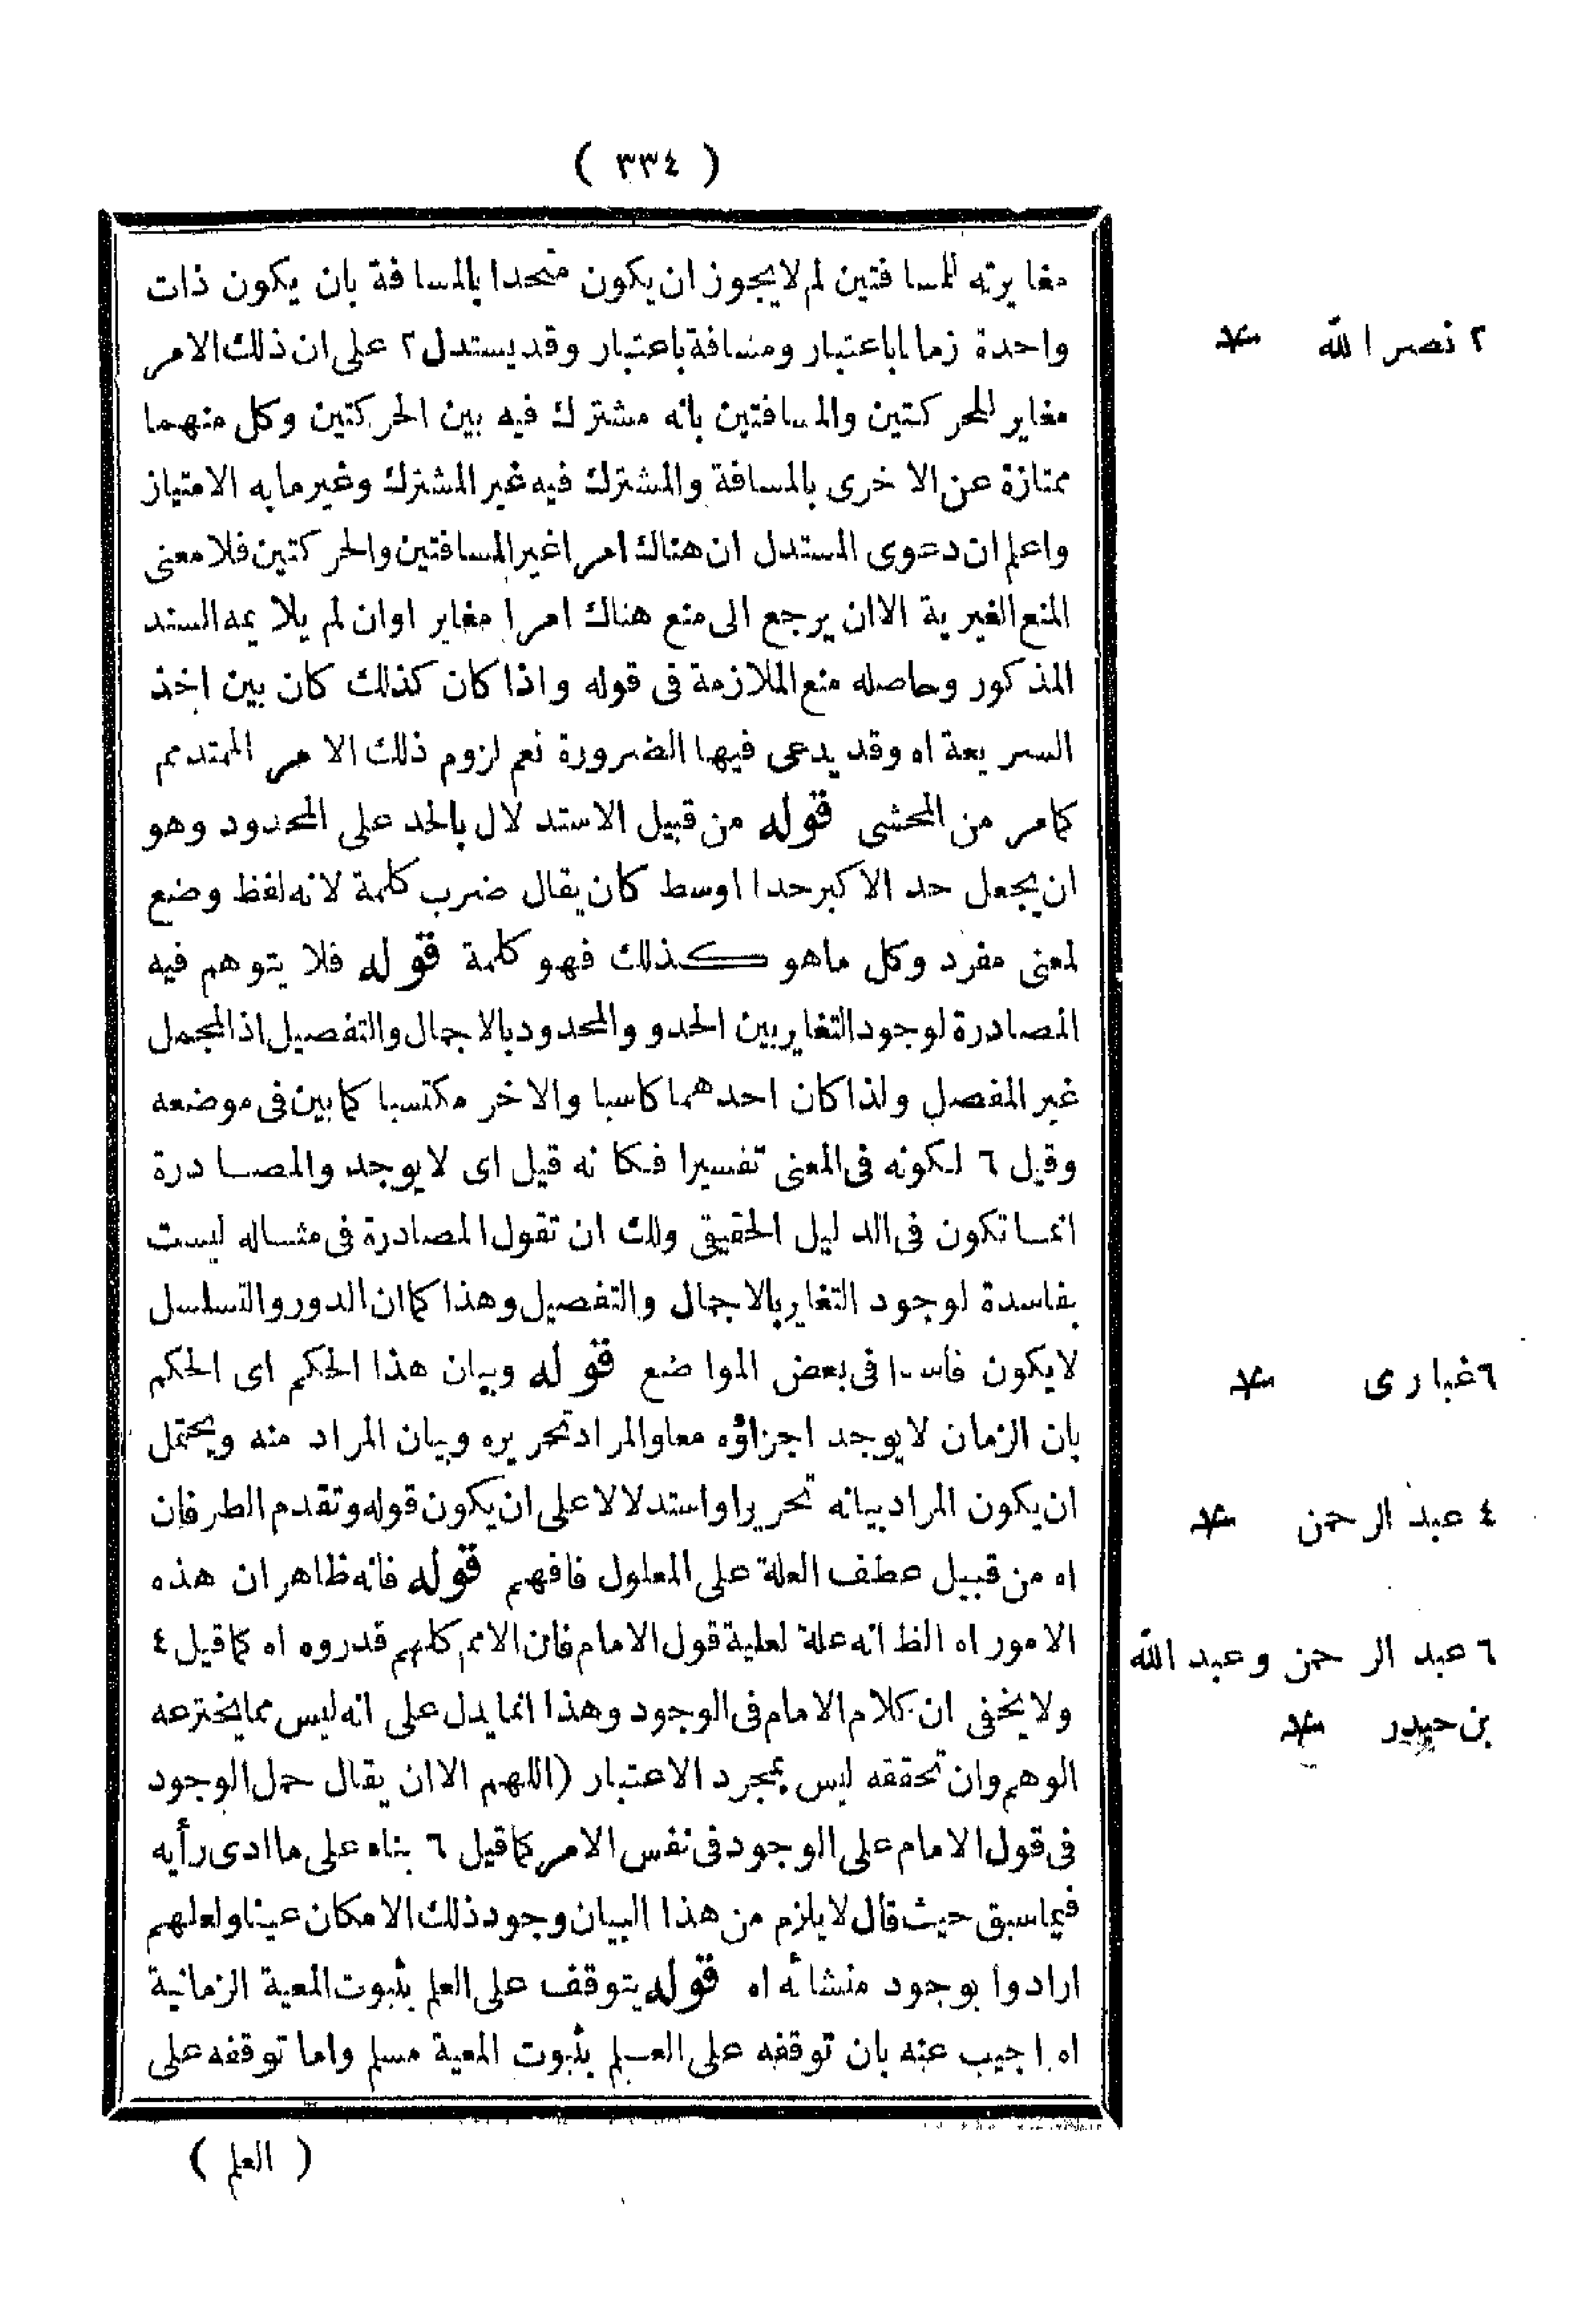 ( ٣٣٤ )
مغايرته للمسافتين لم لايجوز ان يكون متحدا بالمسافة بان يكون ذات
واحدة زمانا باعتبار ومسافة باعتبار وقد يستدل ٢ على ان ذلك الامر
مغاير للحركتين والمسافتين بانه مشترك فيه بين الحركتين وكل منهما
ممتازة عن الاخرى بالمسافة والمشترك فيه غير المشترك وغير مابه الامتياز
واعلم ان دعوى المستدل ان هناك امرا غير المسافتين والحركتين فلا معنى
المنع الغيرية الا ان يرجع الى منع هناك امرا مغايرا وان لم يلايمه السند
المذكور وحاصله منع الملازمة فى قوله واذا كان كذلك كان بين اخذ
السريعة اه وقد يدعى فيها الضرورة نعم لزوم ذلك الامر الممتد مم
كامر من المحشى قوله من قبيل الاستدلال بالحد على المحدود وهو
ان يجعل حد الاكبر حدا اوسط كان يقال ضرب كلمة لانه لفظ وضع
لمعنى مفرد وكل ماهو كذلك فهو كلمة قوله فلا يتوهم فيه
المصادرة لوجود التغاير بين الحدو والمحدود بالاجمال والتفصيل اذ المجمل
غير المفصل ولذا كان احدهما كاسبا والاخر مكتسبا كما بين فى موضعه
وقيل ٦ لكونه فى المعنى تفسيرا فكانه قيل اى لا يوجد والمصادرة
انما تكون فى الدليل الحقيقى ولك ان تقول المصادرة فى مثاله ليست
بفاسدة لوجود التغاير بالاجمال والتفصيل وهذا كما ان الدور والتسلسل
لا يكون فاسدا فى بعض المواضع قوله وبيان هذا الحكم اى الحكم
بان الزمان لا يوجد اجزاؤه معا والمراد تحريره وبيان المراد منه ويحتمل
ان يكون المراد بيانه تحريرا واستدلالا على ان يكون قوله وتقدم الطرفان
اه من قبيل عطف العلة على المعلول فافهم قوله فانه ظاهر ان هذه
الامور اه الظ انه علة لعلية قول الامام فان الامم كلهم قدروه اه كما قيل ٤
ولا يخفى ان كلام الامام فى الوجود وهذا انما يدل على انه ليس مما يخترعه
الوهم وان تحققه ليس بمجرد الاعتبار (اللهم الا ان يقال حمل الوجود
فى قول الامام على الوجود فى نفس الامر كما قيل ٦ بناء على ما ادى رأيه
فيما سبق حيث قال لا يلزم من هذا البيان وجود ذلك الامكان عينا ولعلهم
ارادوا بوجود منشائه اه قوله يتوقف على العلم بثبوت المعية الزمانية
اه اجيب عنه بان توقفه على العلم بثبوت المعية مسلم واما توقفه على
( العلم )
٢ نصر الله
٦ غبارى
٤ عبد الرحمن
٦ عبد الرحمن وعبد الله
بن حيدر